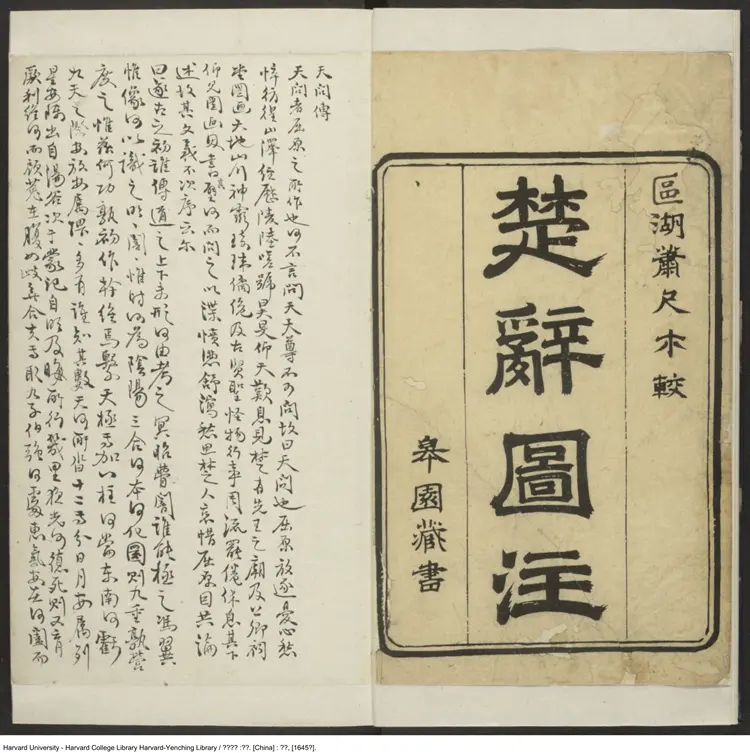 區湖蕭尺木較
楚辭圖注
皐園藏書
天問傳
天問者屈原之所作也何不言問天天尊不可問故曰天問也屈原放逐憂心愁
悴彷徨山澤經歷陵陸嗟號昊旻仰天歎息見楚有先王之廟及公卿祠
堂圖畫天地山川神靈琦瑋僪佹及古賢聖怪物行事周流罷倦休息其下
仰見圖畫因書其壁何而問之以渫憤懣舒瀉愁思楚人哀惜屈原因共論
述故其文義不次序云尔
曰遂古之初誰傳道之上下未形何由考之冥昭瞢闇誰能極之馮翼
惟像何以識之明明闇闇惟時何為陰陽三合何本何化圜則九重孰營
度之惟茲何功孰初作之斡維焉繫天極焉加八柱何當東南何虧
九天之際安放安屬隅隈多有誰知其數天何所沓十二焉分日月安屬列
星安陳出自湯谷次于蒙汜自明及晦所行幾里夜光何德死則又育
厥利維何而顧菟在腹女岐無合夫焉取九子伯強何處惠氣安在何闔而